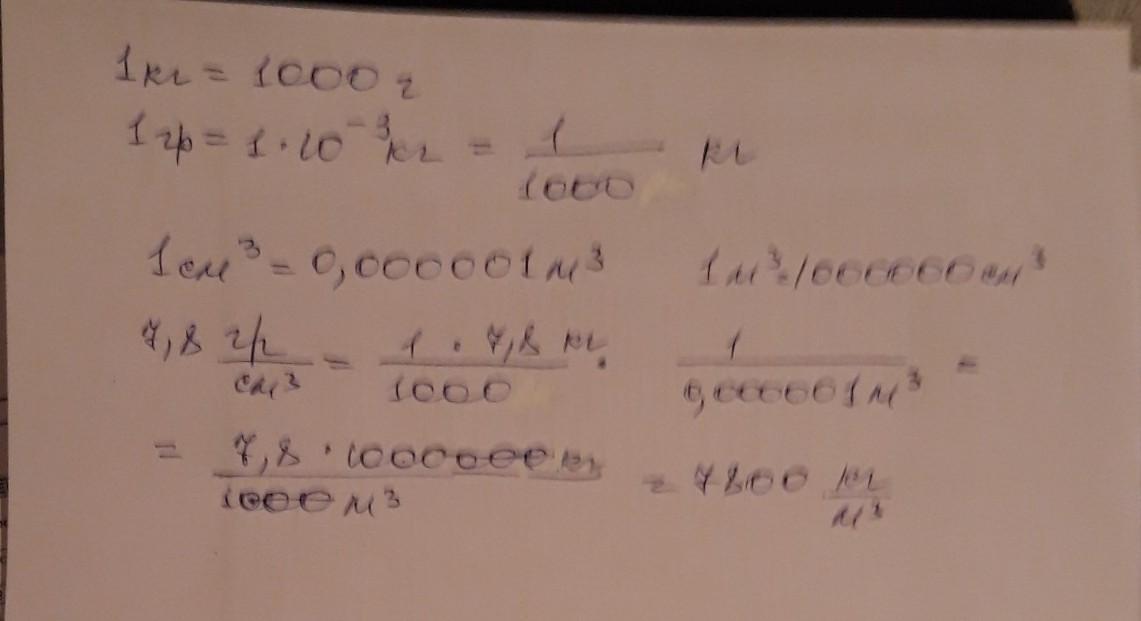 1кг = 1000 г
1 гр = 1·10⁻³ кг = 1/1000 кг
1 см³ = 0,000001 м³ 1 м³ = 1000000 см³
7,8 гр/см³ = 1 · 7,8 кг/1000 · 1/0,000001 м³ =
= 7,8 · 1000000 кг/1000 м³ = 7800 кг/м³